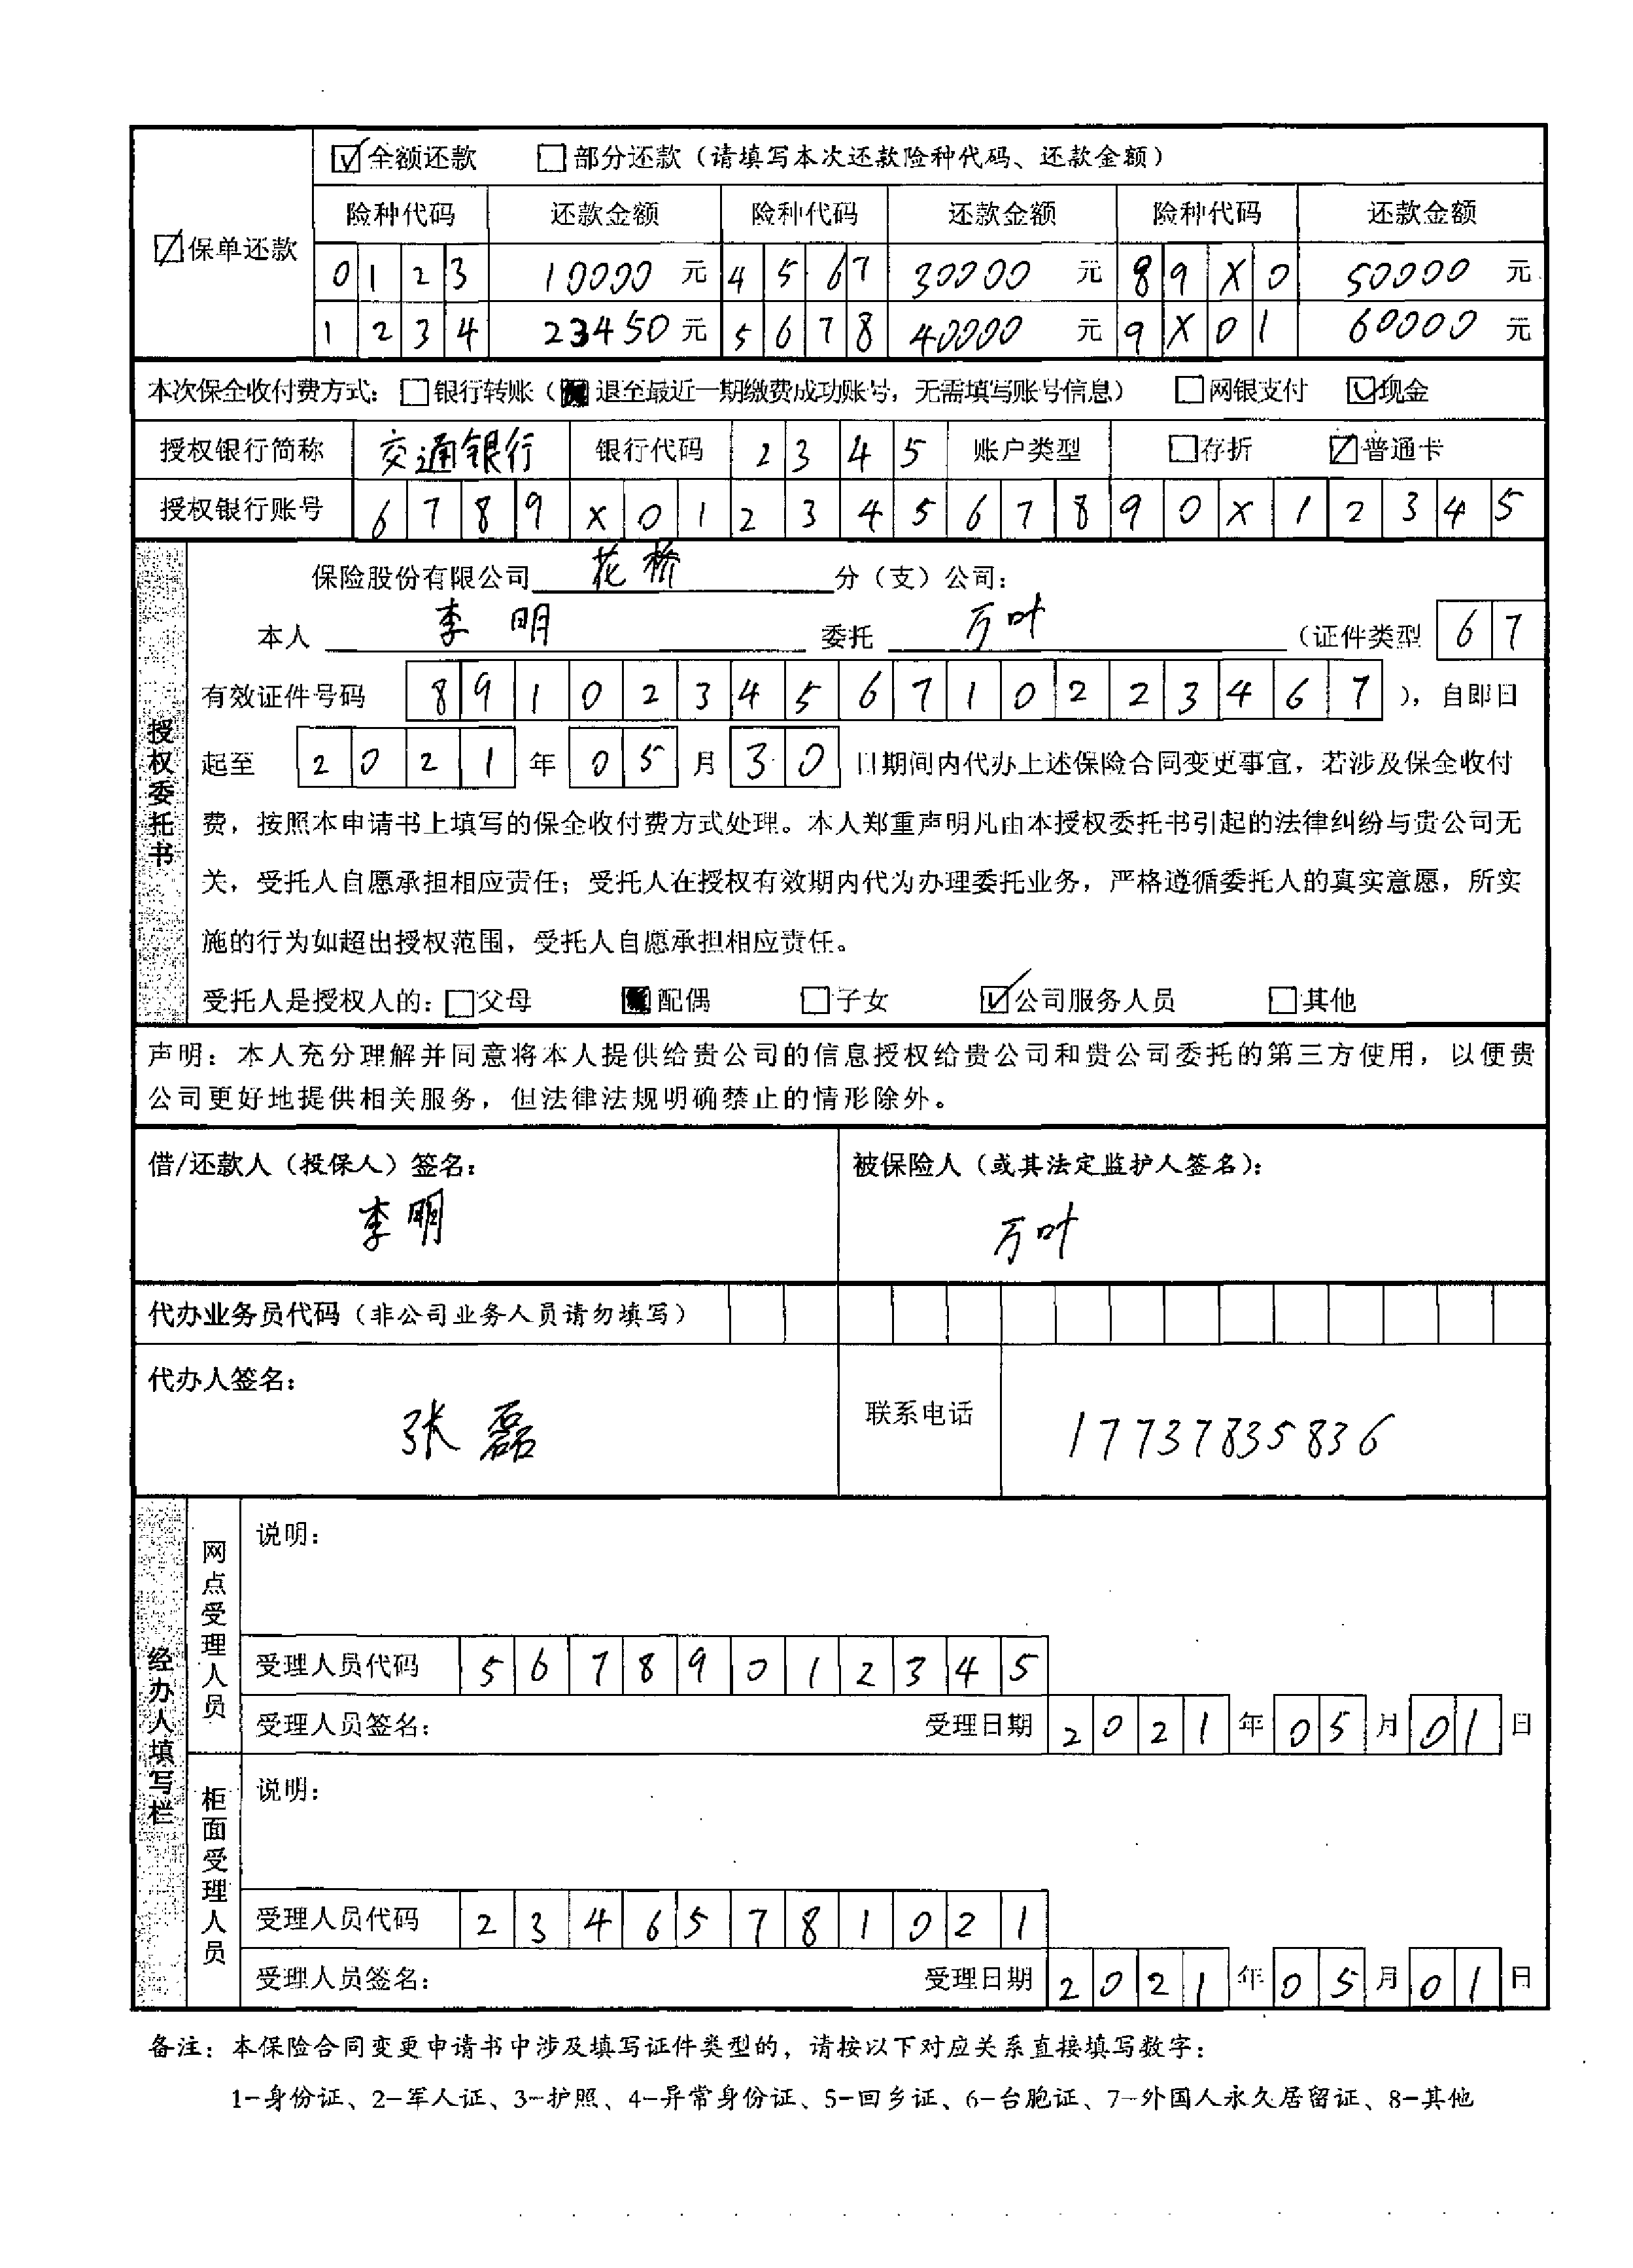 ☑全额还款 ☐部分还款（请填写本次还款险种代码、还款金额）
☑保单还款
险种代码 还款金额 险种代码 还款金额 险种代码 还款金额
0123 10000 元 4567 30000 元 89X0 50000 元
1234 23450 元 5678 40000 元 9X01 60000 元
本次保全收付费方式：☐银行转账（■退至最近一期缴费成功账号，无需填写账号信息） ☐网银支付 ☑现金
授权银行简称 交通银行 银行代码 2345 账户类型 ☐存折 ☑普通卡
授权银行账号 6789X01234567890X12345
授权委托书
保险股份有限公司 花桥 分（支）公司：
本人 李明 委托 万叶 （证件类型 67
有效证件号码 891023456710223467 ），自即日
起至 2021 年 05 月 30 日期间内代办上述保险合同变更事宜，若涉及保全收付
费，按照本申请书上填写的保全收付费方式处理。本人郑重声明凡由本授权委托书引起的法律纠纷与贵公司无
关，受托人自愿承担相应责任；受托人在授权有效期内代为办理委托业务，严格遵循委托人的真实意愿，所实
施的行为如超出授权范围，受托人自愿承担相应责任。
受托人是授权人的：☐父母 ■配偶 ☐子女 ☑公司服务人员 ☐其他
声明：本人充分理解并同意将本人提供给贵公司的信息授权给贵公司和贵公司委托的第三方使用，以便贵
公司更好地提供相关服务，但法律法规明确禁止的情形除外。
借/还款人（投保人）签名： 被保险人（或其法定监护人签名）：
李明 万叶
代办业务员代码（非公司业务人员请勿填写）
代办人签名：
张磊 联系电话 17737835836
经办人填写栏
网点受理人员
说明：
受理人员代码 56789012345
受理人员签名： 受理日期 2021 年 05 月 01 日
柜面受理人员
说明：
受理人员代码 23465781021
受理人员签名： 受理日期 2021 年 05 月 01 日
备注：本保险合同变更申请书中涉及填写证件类型的，请按以下对应关系直接填写数字：
1-身份证、2-军人证、3-护照、4-异常身份证、5-回乡证、6-台胞证、7-外国人永久居留证、8-其他